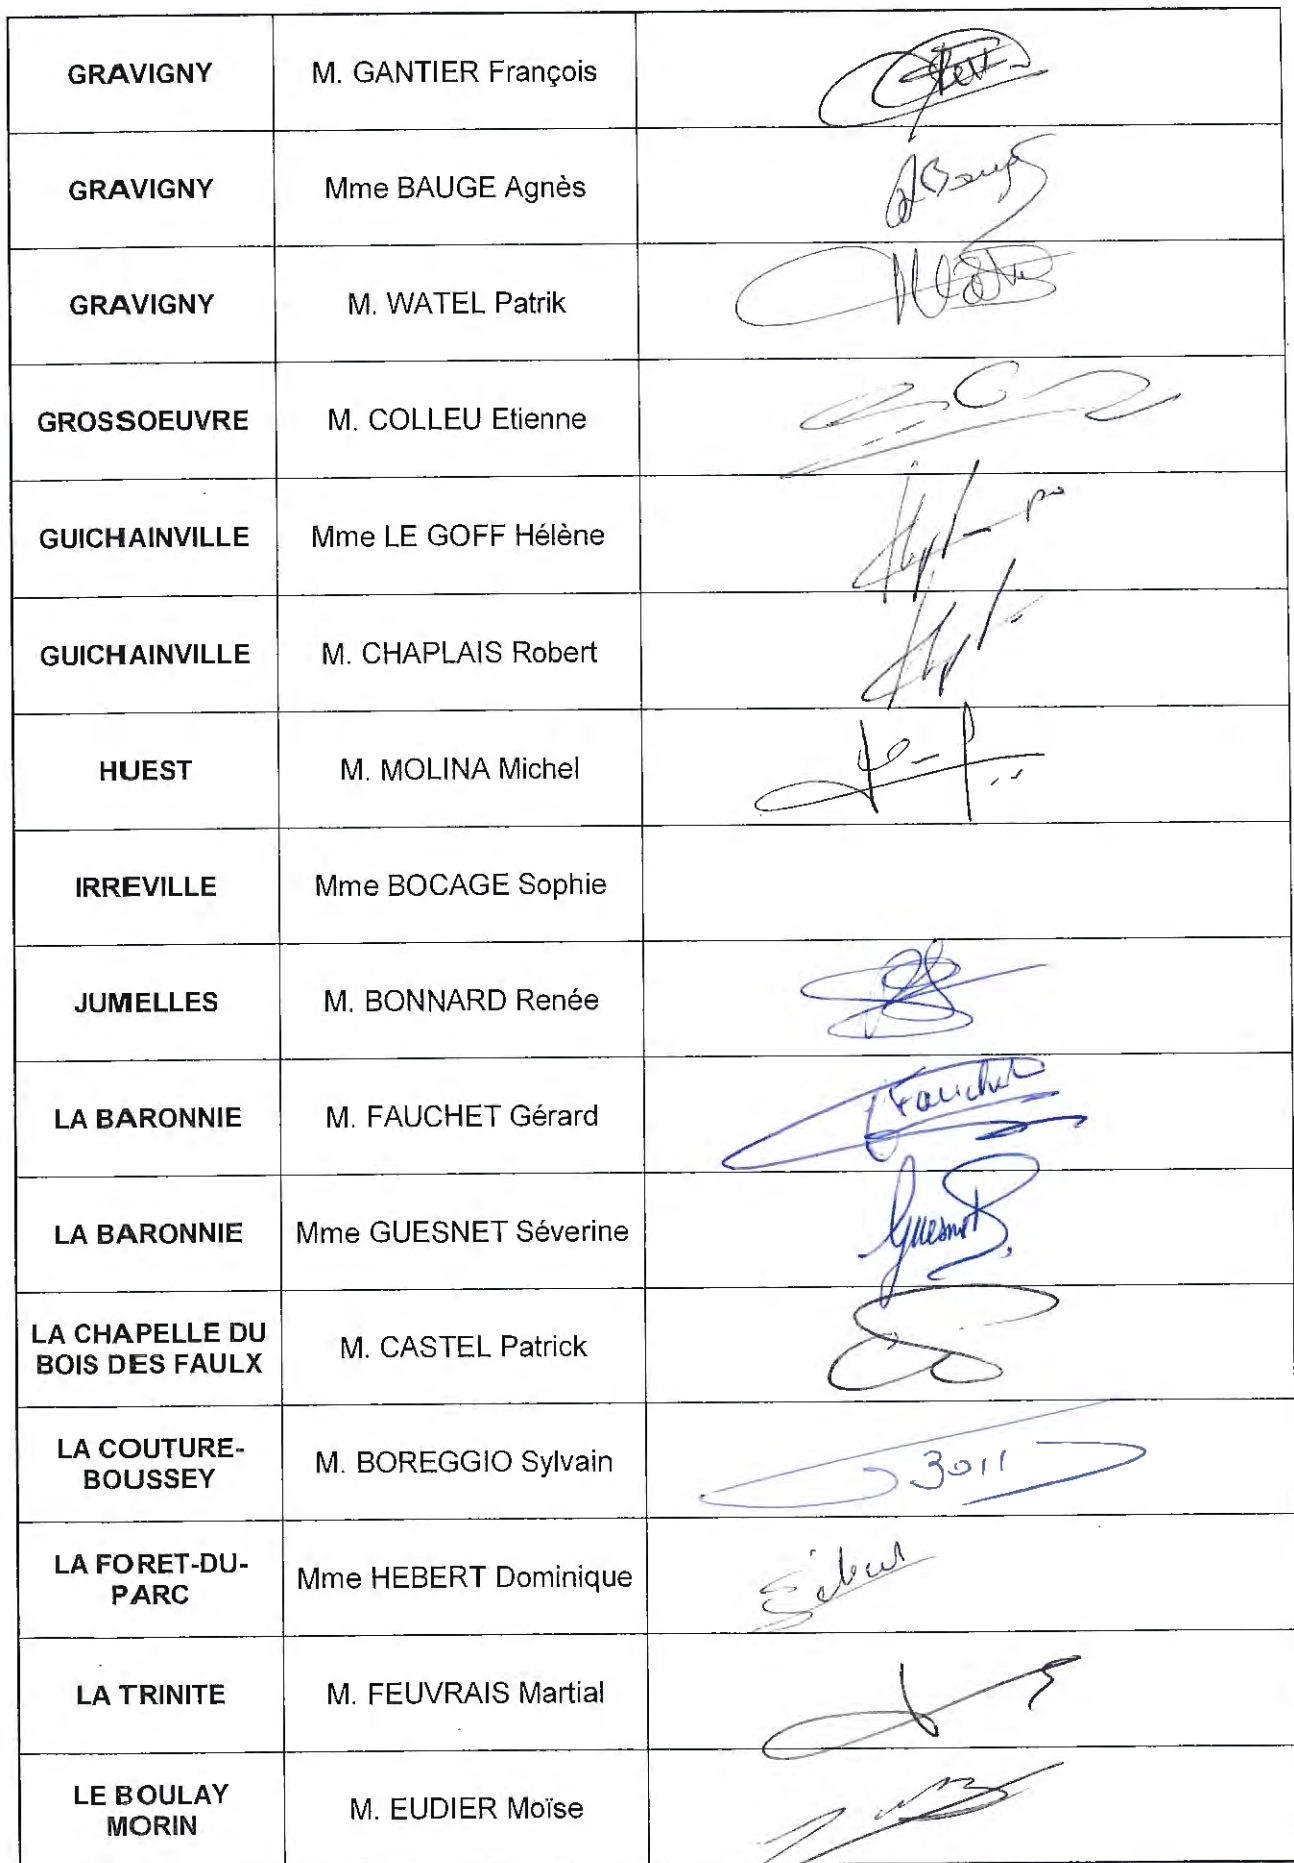 GRAVIGNY M. GANTIER François
GRAVIGNY Mme BAUGE Agnès
GRAVIGNY M. WATEL Patrik
GROSSOEUVRE M. COLLEU Etienne
GUICHAINVILLE Mme LE GOFF Hélène po
GUICHAINVILLE M. CHAPLAIS Robert
HUEST M. MOLINA Michel
IRREVILLE Mme BOCAGE Sophie
JUMELLES M. BONNARD Renée
LA BARONNIE M. FAUCHET Gérard Fauchet
LA BARONNIE Mme GUESNET Séverine Guesnet
LA CHAPELLE DU
BOIS DES FAULX
M. CASTEL Patrick
LA COUTURE-
BOUSSEY
M. BOREGGIO Sylvain
LA FORET-DU-
PARC
Mme HEBERT Dominique
LA TRINITE M. FEUVRAIS Martial
LE BOULAY
MORIN
M. EUDIER Moïse